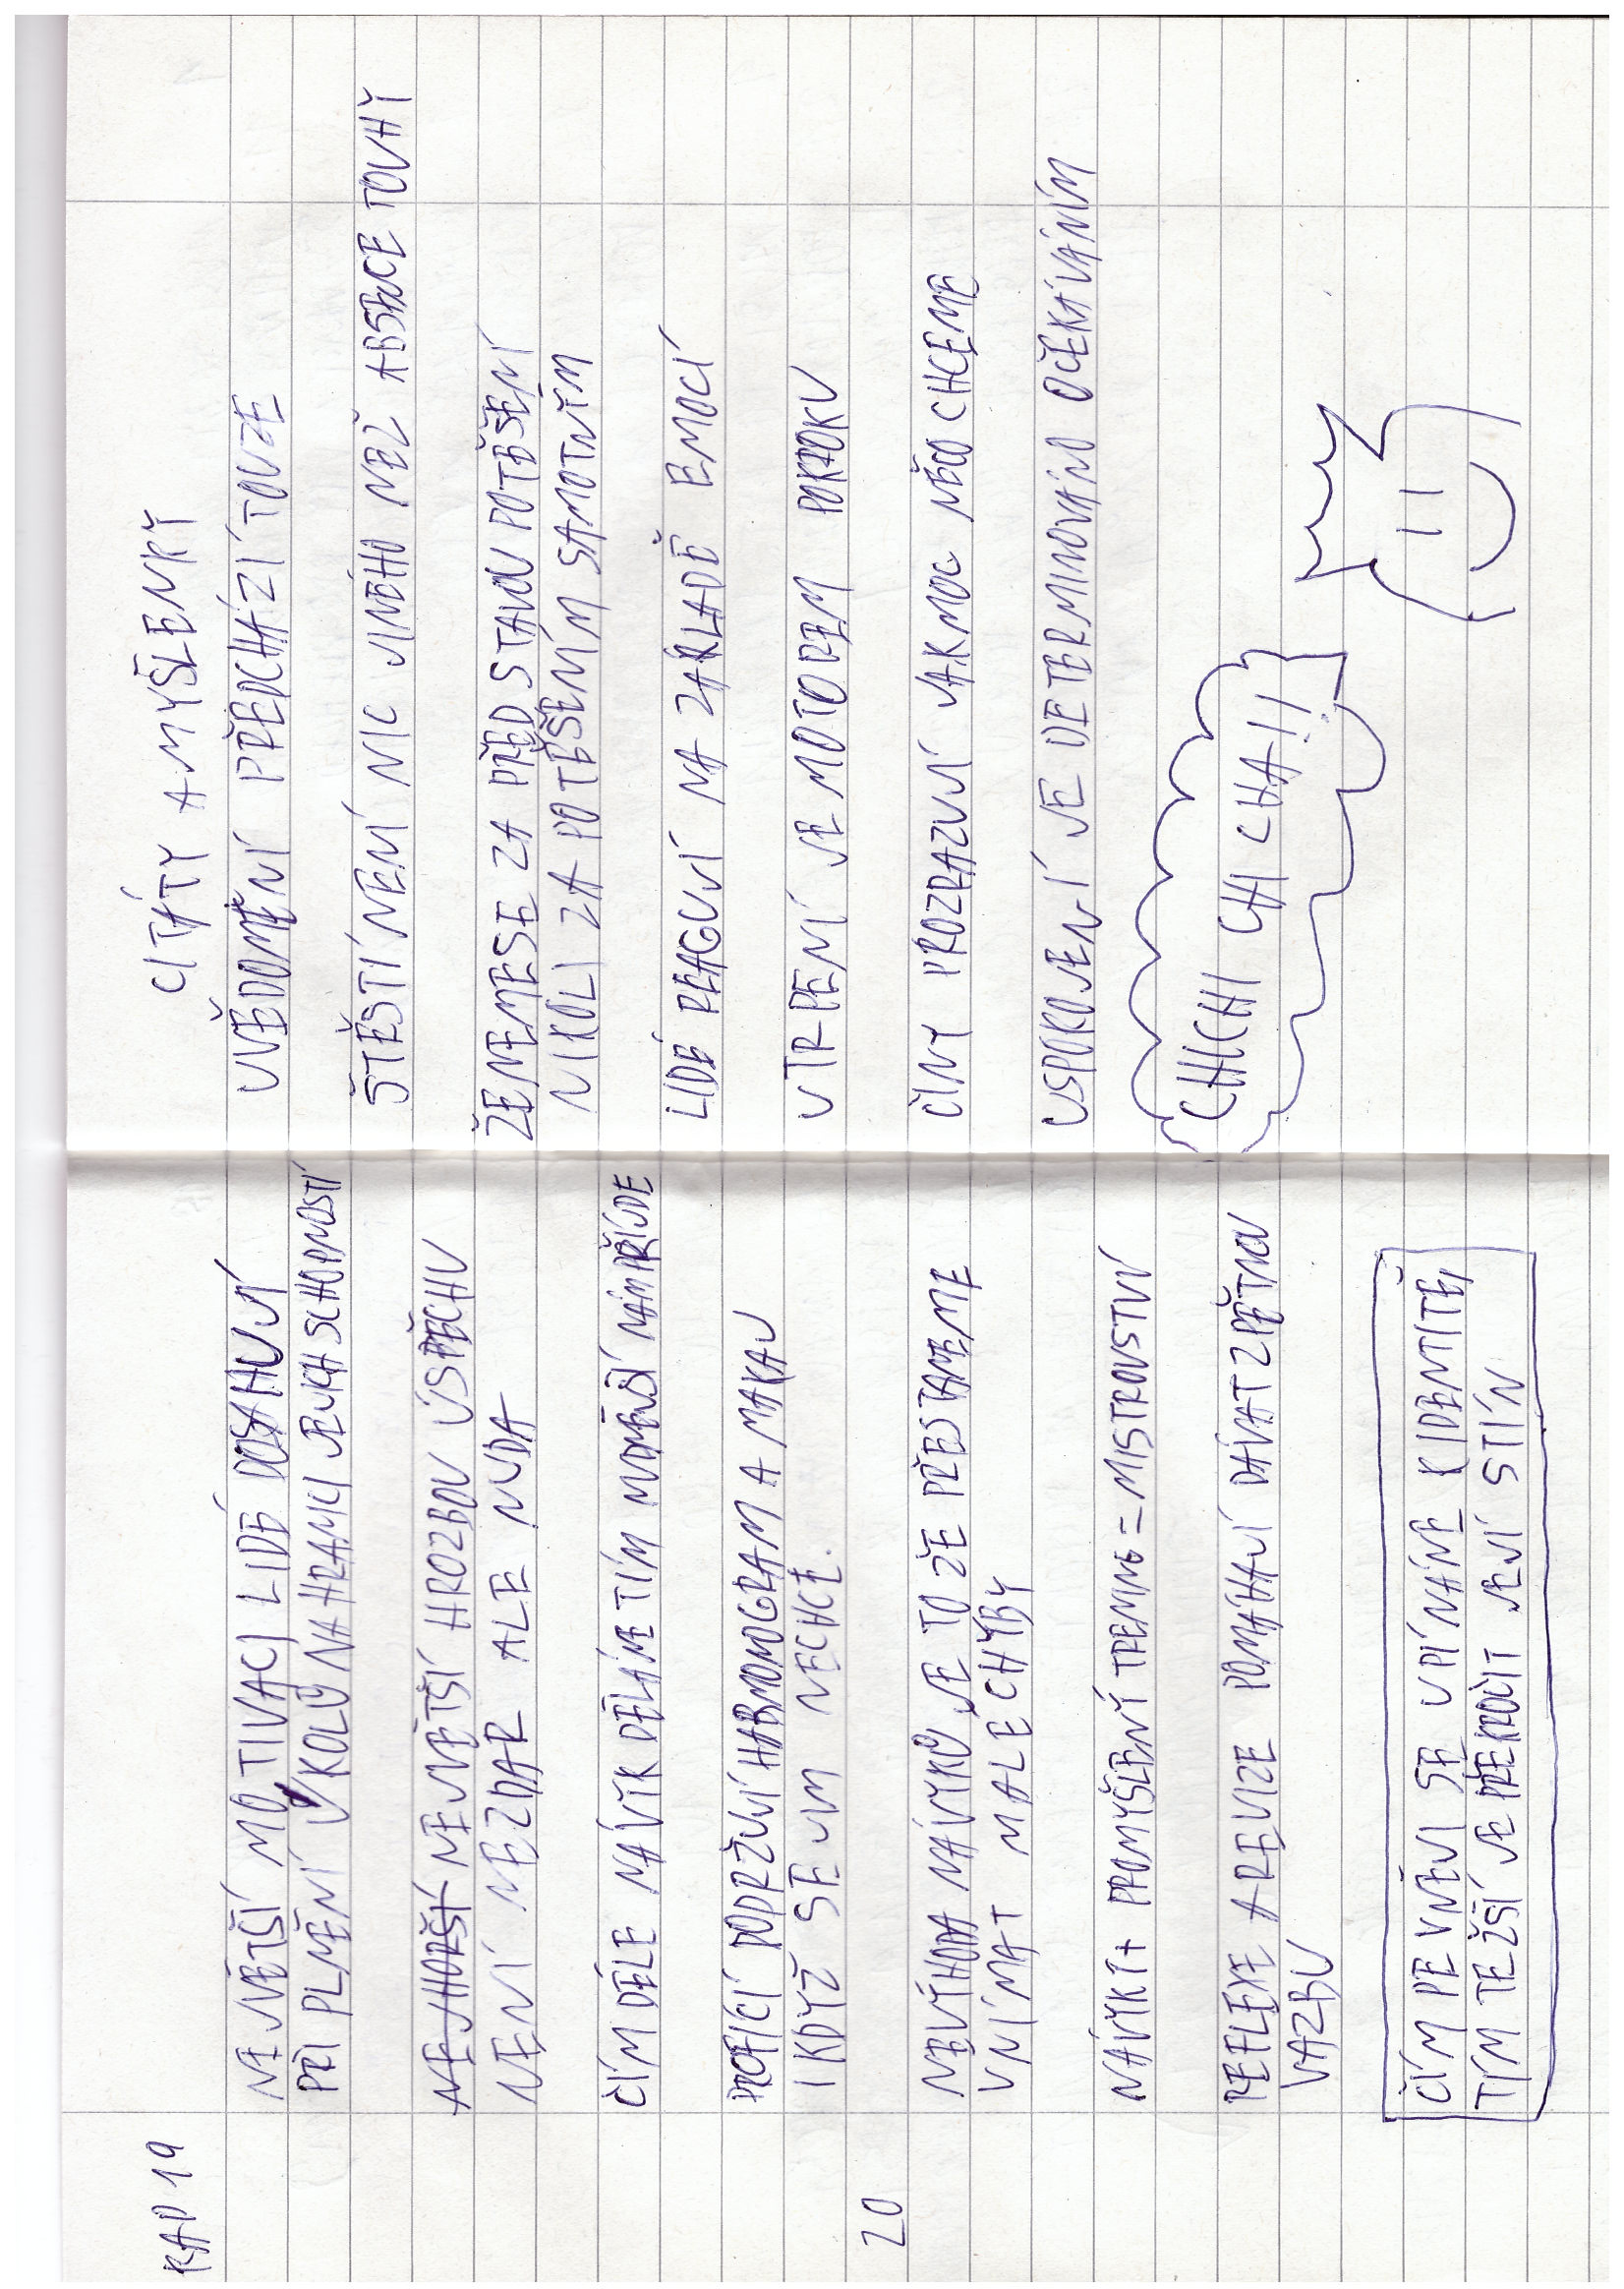 KAP 19
NEJVĚTŠÍ MOTIVACI LIDÉ DOSAHUJÍ
PŘI PLNĚNÍ ÚKOLŮ NA HRANICI JEJICH SCHOPNOSTÍ
NEJHORŠÍ NEJVĚTŠÍ HROZBOU ÚSPĚCHU
NENÍ NEZDAR ALE NUDA
ČÍM DÉLE NÁVYK DĚLÁME TÍM NUDNĚJŠÍ NÁM PŘIJDE
PROFÍCI DODRŽUJÍ HARMONOGRAM A MAKAJ
I KDYŽ SE JIM NECHCE.
20
NEVÝHODA NÁVYKŮ JE TO ŽE PŘESTANEME
VNÍMAT MALÉ CHYBY
NÁVYKY + PROMYŠLENÝ TRENING = MISTROVSTVÍ
REFLEXE A REVIZE POMÁHAJÍ DÁVAT ZPĚTNOU
VAZBU
ČÍM PEVNĚJI SE UPÍNÁME K IDENTITĚ,
TÍM TEŽŠÍ JE PŘEKROČIT JEJÍ STÍN
CITÁTY A MYŠLENKY
UVĚDOMĚNÍ PŘEDCHÁZÍ TOUZE
ŠTĚSTÍ NENÍ NIC JINÉHO NEŽ ABSENCE TOUHY
ŽENEME SE ZA PŘEDSTAVOU POTĚŠENÍ
NIKOLI ZA POTĚŠENÍM SAMOTNÝM
LIDÉ REAGUJÍ NA ZÁKLADĚ EMOCÍ
UTRPENÍ JE MOTOREM POKROKU
ČINY PROZRAZUJÍ JAK MOC NĚCO CHCEME
USPOKOJENÍ JE DETERMINOVÁNO OČEKÁVÁNÍM
CHICHI CHI CHA!!